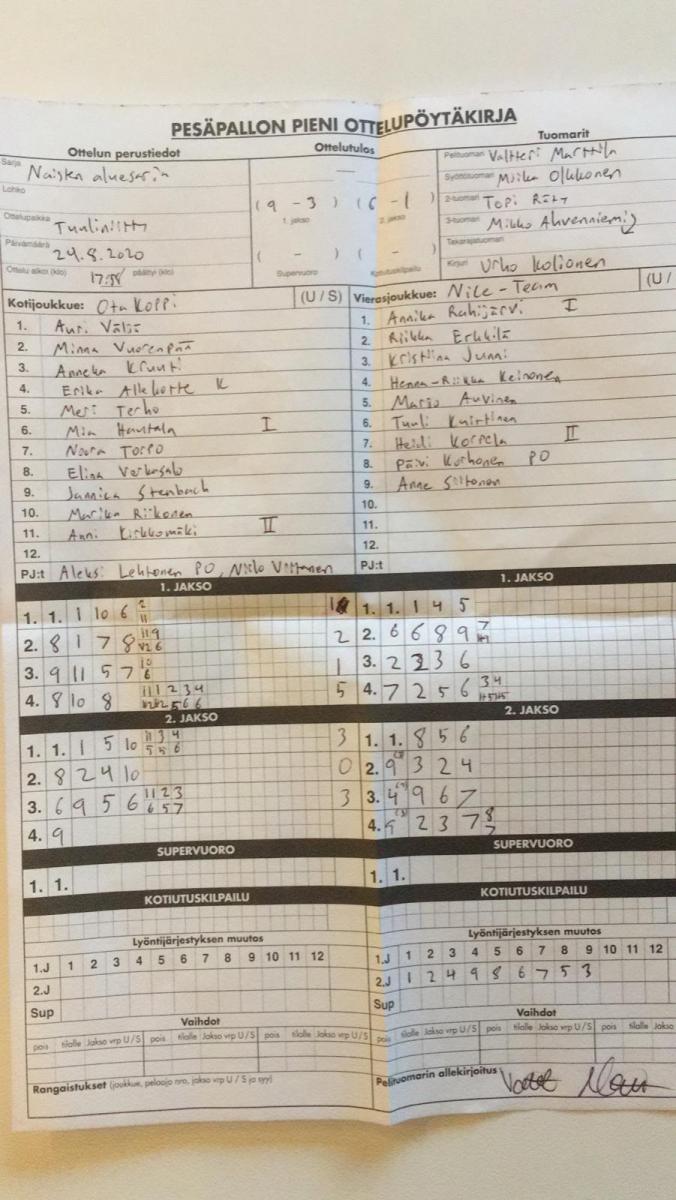 PESÄPALLON PIENI OTTELUPÖYTÄKIRJA
Ottelun perustiedot
Sarja Naisten aluesarja
Lohko
Ottelupaikka Tuuliniitty
Päivämäärä 24.8.2020
Ottelu alkoi (klo) 17:58 päättyi (klo)
Ottelutulos
(9 - 3) (6 - 1)
1. jakso 2. jakso
( - ) ( - )
Supervuoro Kotiutuskilpailu
Tuomarit
Pelituomari Valtteri Marttila
Syöttötuomari Miika Olkkonen
2-tuomari Topi Räty
3-tuomari Mikko Ahvenniemi
Takarajatuomari
Kirjuri Urho Kolionen
Kotijoukkue: Ota Koppi (U / S)
1. Auri Väljä
2. Minna Vuorenpää
3. Anneka Kruuti
4. Erika Allekotte K
5. Meri Terho
6. Mia Hautala I
7. Noora Torpo
8. Elina Verkasalo
9. Jannica Stenbach
10. Marika Riikonen
11. Anni Kirkkomäki II
12.
PJ:t Aleksi Lehtonen PO, Niilo Viitanen
Vierasjoukkue: Nice-Team (U /
1. Annika Rahijärvi I
2. Riikka Erkkilä
3. Kristiina Junni
4. Henna-Riikka Keinonen
5. Marjo Auvinen
6. Tuuli Kuirtinen
7. Heidi Korpela II
8. Päivi Korhonen PO
9. Anne Siltonen
10.
11.
12.
PJ:t
1. JAKSO
1. 1. 1 10 6 2 11
2. 8 1 7 8 2
3. 9 11 5 7 10 6 1
4. 8 10 8 11 1 2 3 4 5
2. JAKSO
1. 1. 1 5 10 11 3 4 5 5 6 3
2. 8 2 4 10 0
3. 6 9 5 6 11 2 3 6 5 7 3
4. 9
SUPERVUORO
1. 1.
KOTIUTUSKILPAILU
1. JAKSO
1. 1. 1 4 5
2. 6 6 8 9 7
3. 2 2 3 6
4. 7 2 5 6 3 4
2. JAKSO
1. 1. 8 5 6
2. 9 3 2 4
3. 4 9 6 7
4. 5 2 3 7 8 7
SUPERVUORO
1. 1.
KOTIUTUSKILPAILU
Lyöntijärjestyksen muutos
1.J 1 2 3 4 5 6 7 8 9 10 11 12
2.J
Sup
Vaihdot
pois tilalle Jakso vrp U / S pois tilalle Jakso vrp U / S pois tilalle Jakso vrp U / S
Rangaistukset (joukkue, pelaaja nro, jakso vrp U / S ja syy)
Lyöntijärjestyksen muutos
1.J 1 2 3 4 5 6 7 8 9 10 11 12
2.J 1 2 4 9 8 6 7 5 3
Sup
Vaihdot
pois tilalle Jakso vrp U / S pois tilalle Jakso vrp U / S pois tilalle Jakso
Pelituomarin allekirjoitus